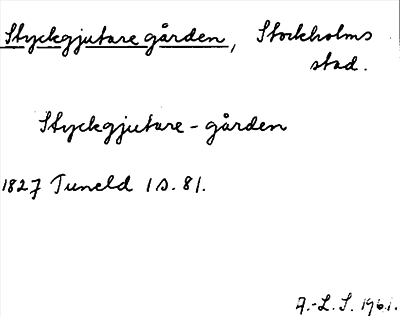 Styckgjutaregården, Stockholms
stad.
Styckgjutare-gården
1827 Tuneld 1 s. 81.
A.-L. S. 1961.